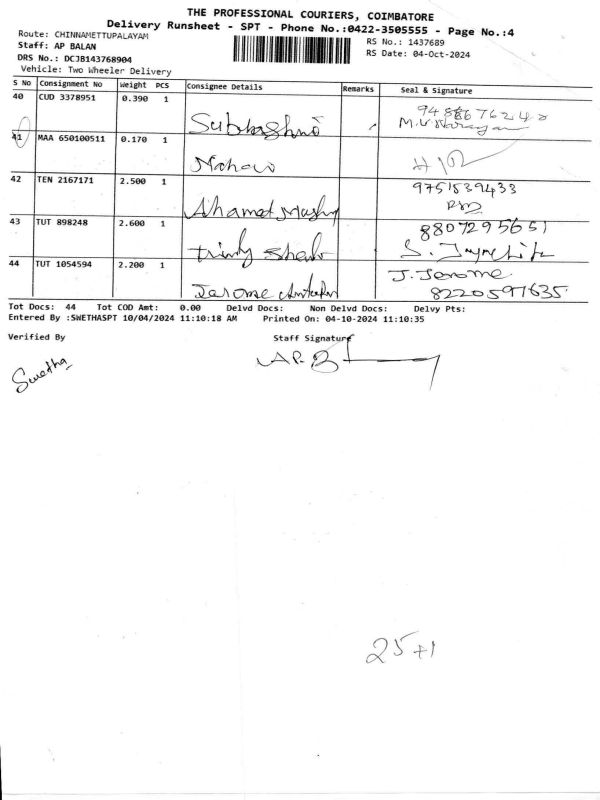 THE PROFESSIONAL COURIERS, COIMBATORE
Delivery Runsheet - SPT - Phone No.:0422-3505555 - Page No.:4
Route: CHINNAMETTUPALAYAM
RS No.: 1437689
Staff: AP BALAN
RS Date: 04-Oct-2024
DRS No.: DCJB143768904
Vehicle: Two Wheeler Delivery
S No Consignment No Weight PCS Consignee Details Remarks Seal & Signature
40 CUD 3378951 0.390 1
Subhashni
41 MAA 650100511 0.170 1
42 TEN 2167171 2.500 1 9751539433
Ahamed
43 TUT 898248 2.600 1 8807295651
Trindy
44 TUT 1054594 2.200 1 J. Jerome
Jarome 8220597635
Tot Docs: 44 Tot COD Amt: 0.00 Delvd Docs: Non Delvd Docs: Delvy Pts:
Entered By :SWETHASPT 10/04/2024 11:10:18 AM Printed On: 04-10-2024 11:10:35
Verified By Staff Signature
Swetha A.P. B
25+1